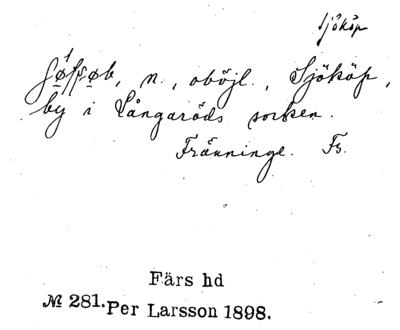 Sjököp
n., oböjl., Sjököp,
by i Långaröds socken.
Fränninge. Fs.
Färs hd
№ 281. Per Larsson 1898.